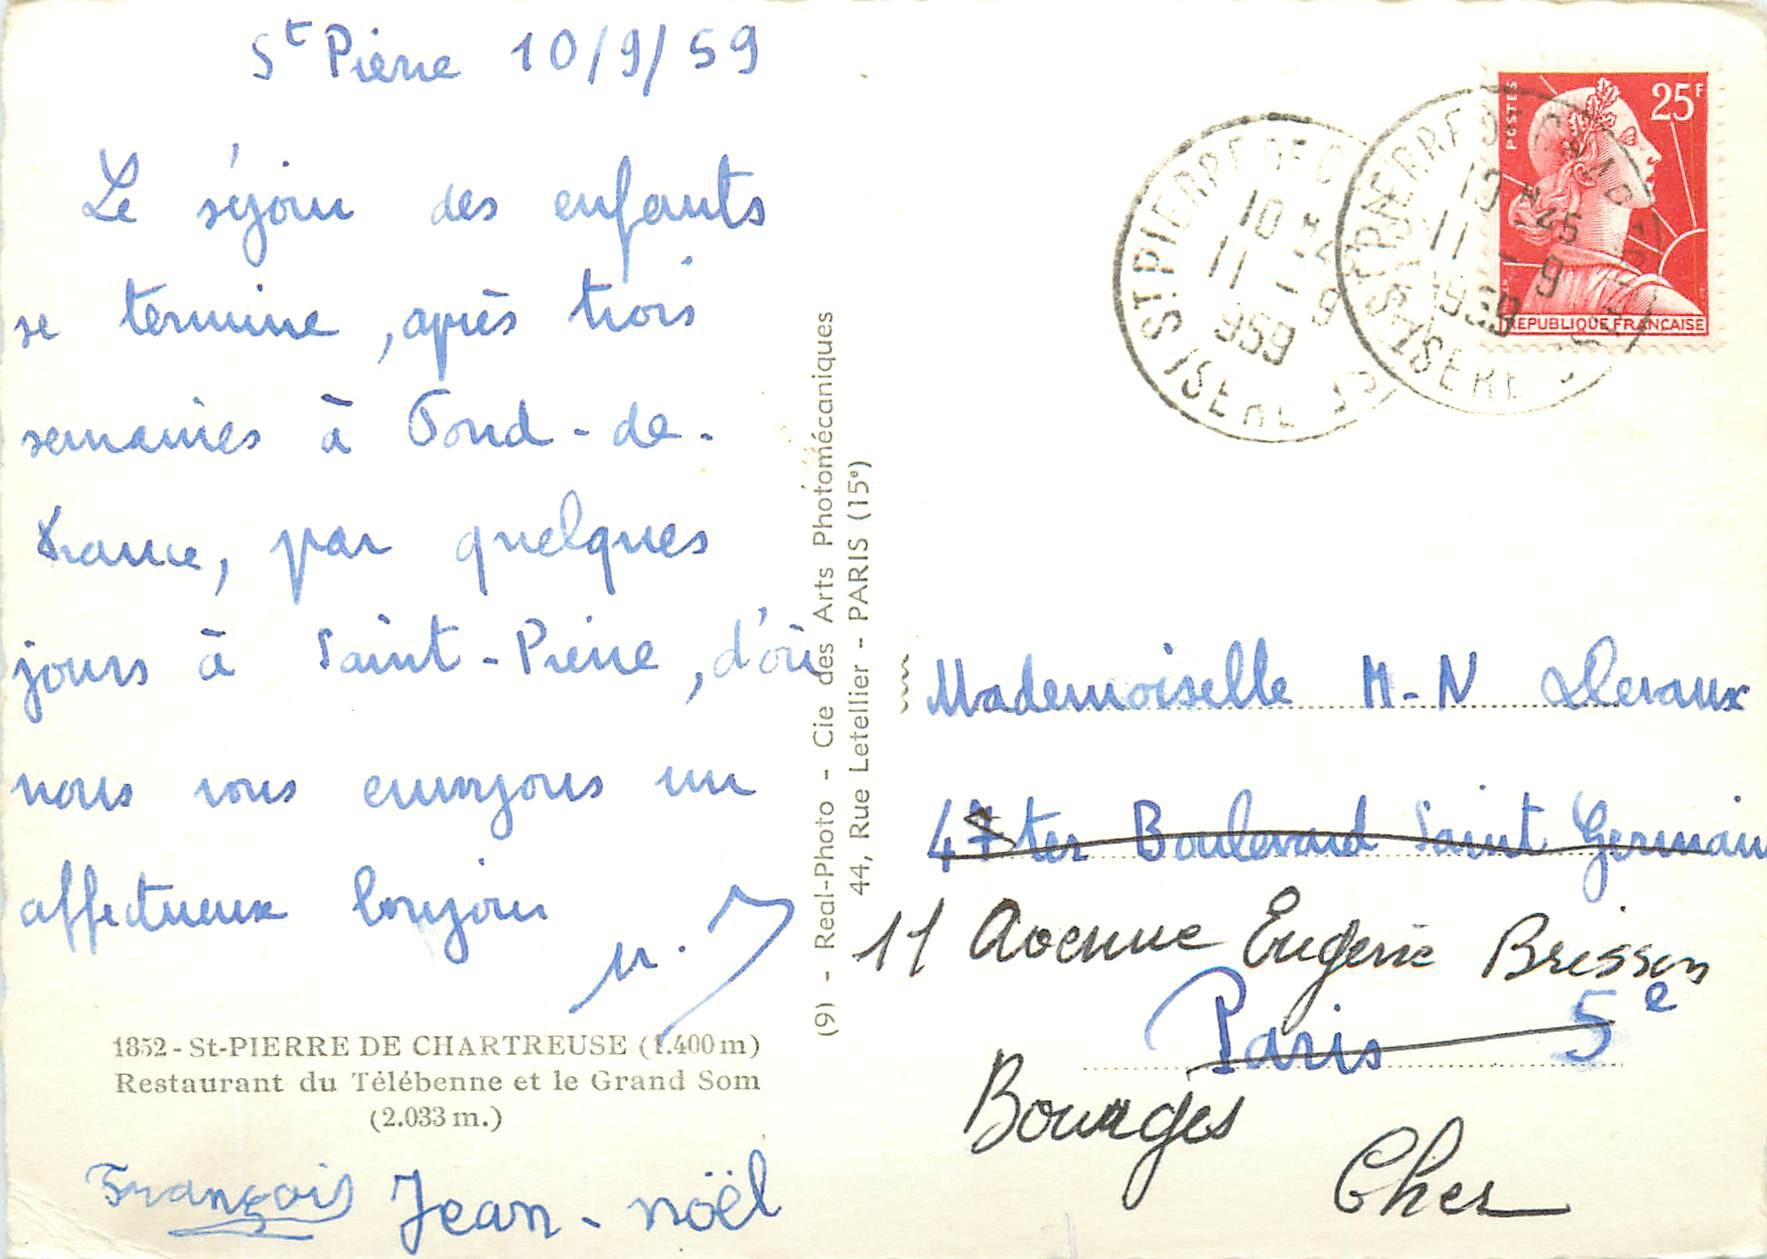 St Pierre 10/9/59
Le séjour des enfants
se termine, après trois
semaines à Fond-de-
France, par quelques
jours à Saint-Pierre, d'où
nous vous envoyons un
affectueux bonjour
1852 - St-PIERRE DE CHARTREUSE (1.400 m)
Restaurant du Télébenne et le Grand Som
(2.033 m.)
François Jean-noël
(9) - Real-Photo - Cie des Arts Photomécaniques
44, Rue Letellier - PARIS (15e)
POSTES
25F
REPUBLIQUE FRANCAISE
ST PIERRE DE C
10 
11 - 9
959
ISERE
PIERRE DE CHARTR
10 H45
11 - 9
1959
ISERE
Mademoiselle M-N Devaux
47ter Boulevard Saint Germain
11 Avenue Eugene Brisson
Paris 5e
Bourges
Cher